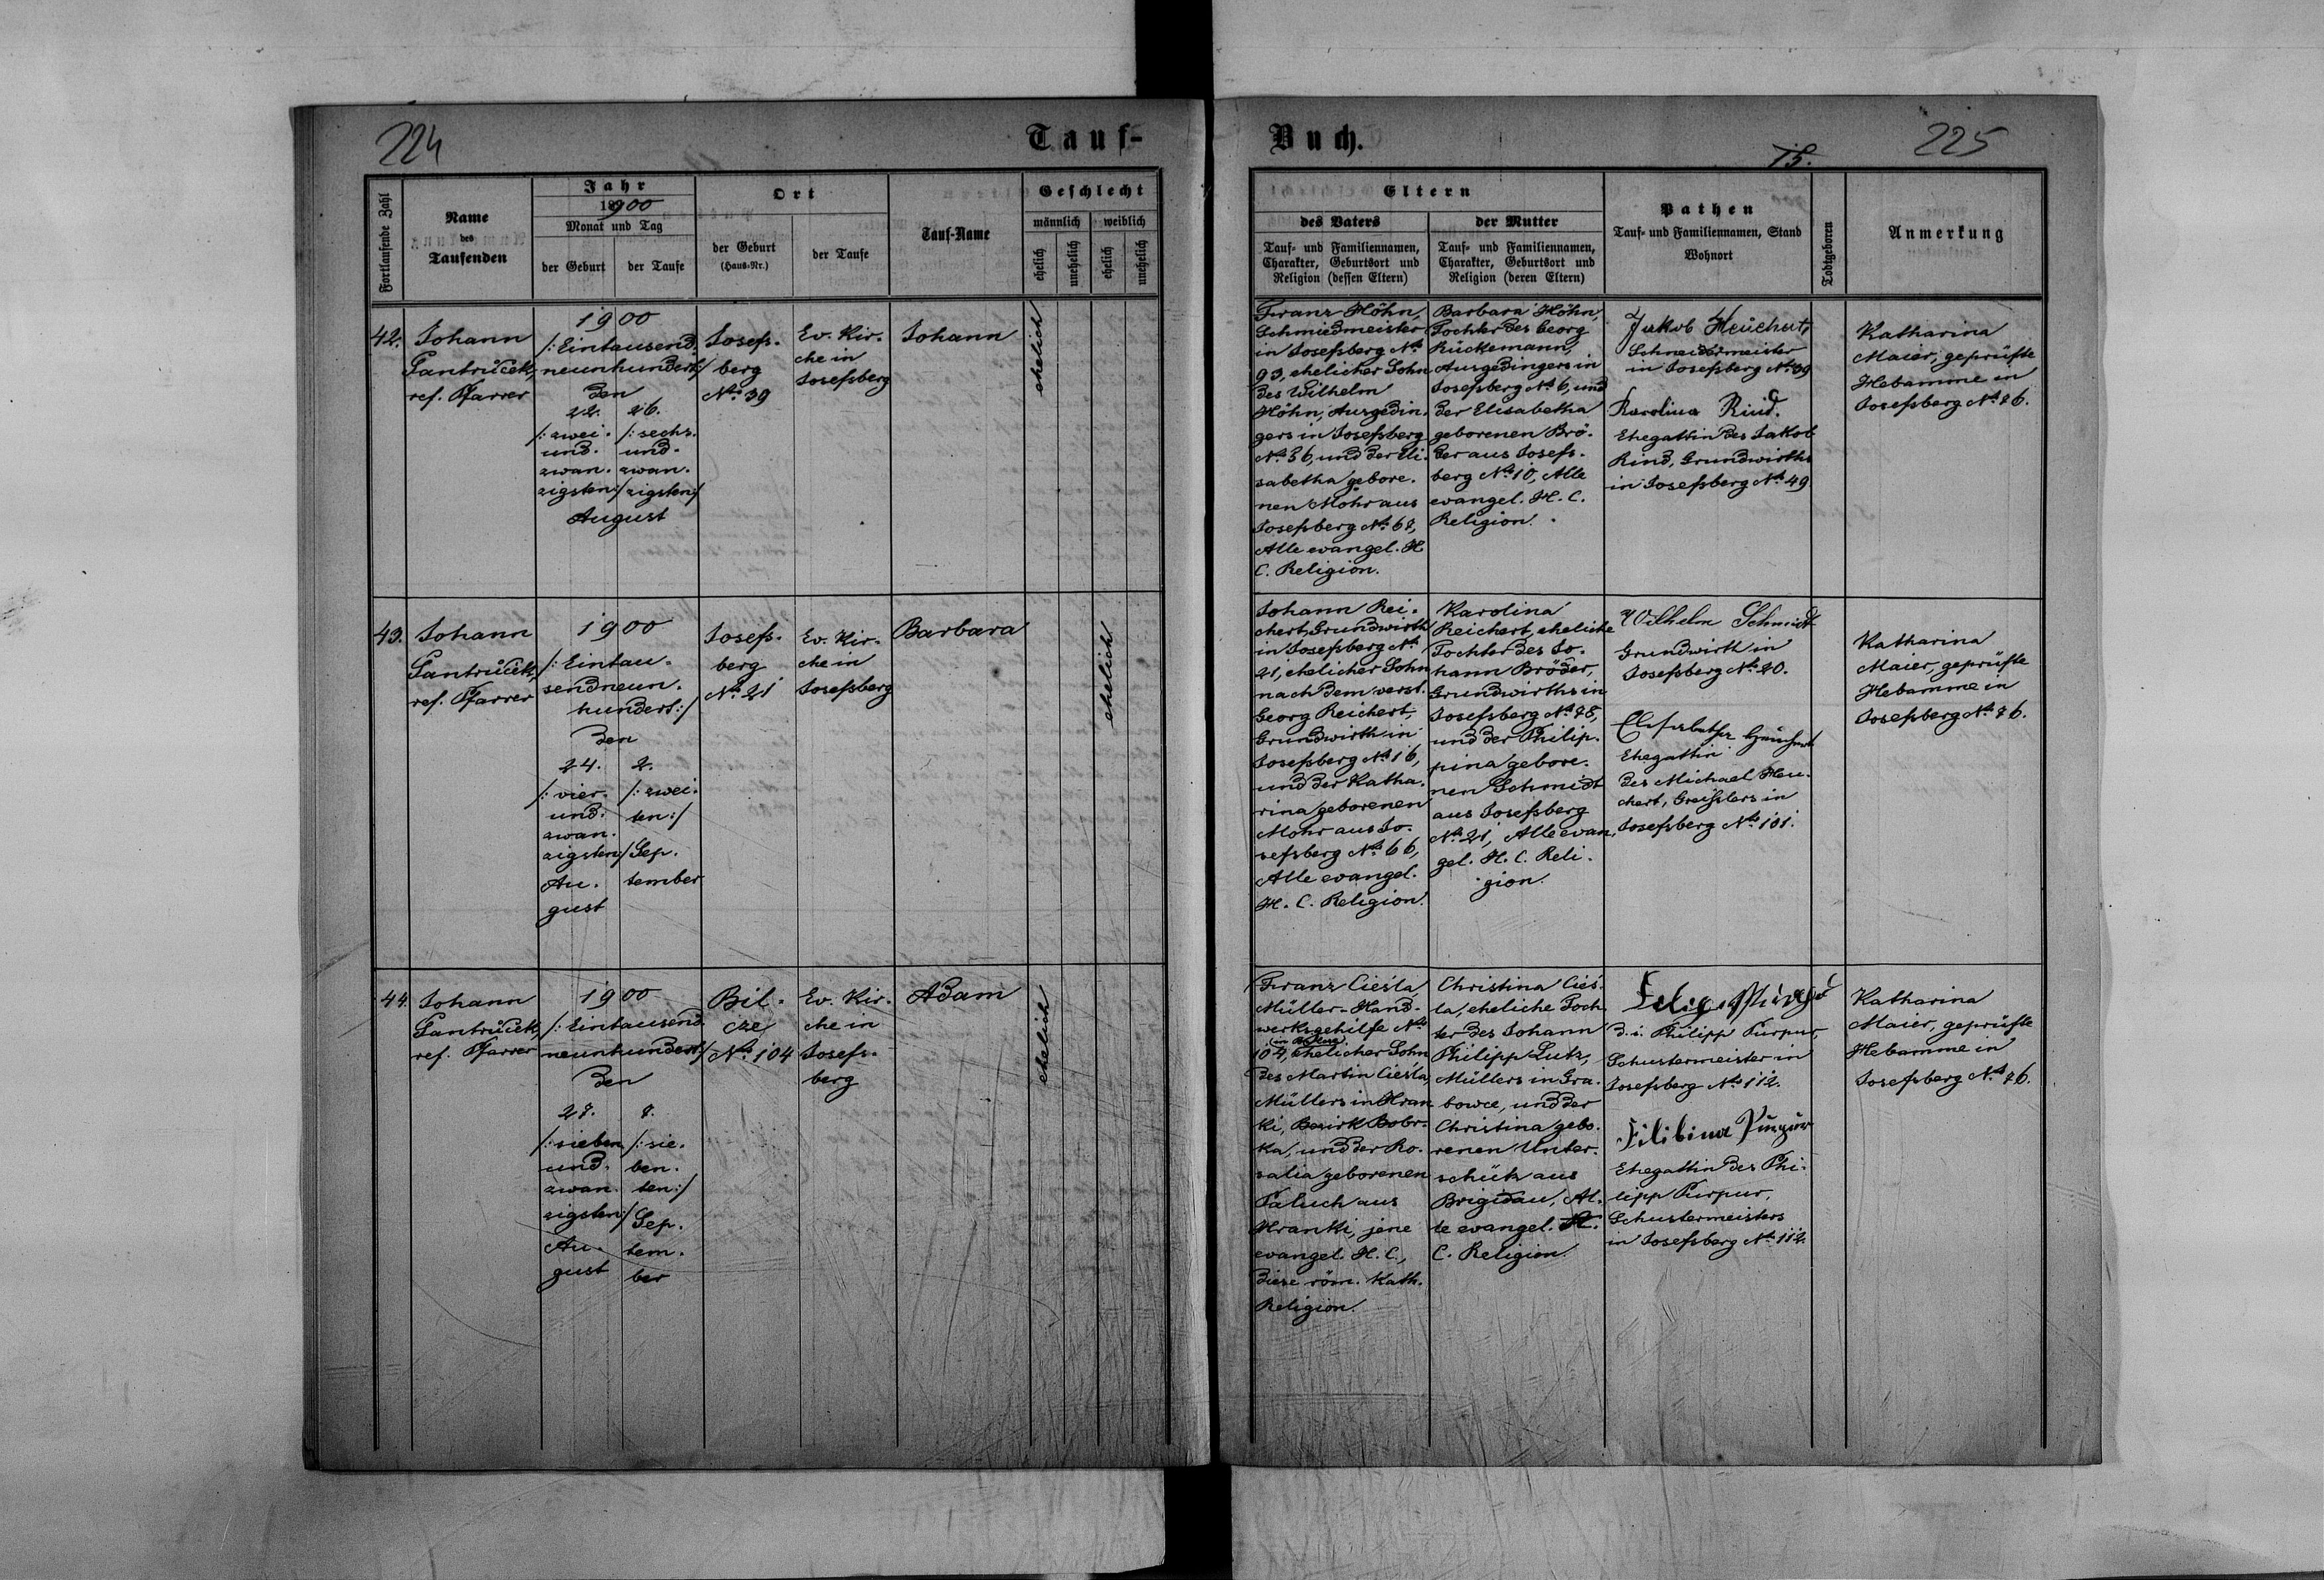 224
Tauf-
Fortlaufende Zahl
Name
des
Taufenden
Jahr
1900
Monat und Tag
der Geburt
der Taufe
Ort
der Geburt
(Haus-Nr.)
der Taufe
Tauf-Name
Geschlecht
männlich
weiblich
ehelich
unehelich
ehelich
unehelich
42.
Johann
Jantrůček,
ref. Pfarrer
1900
/: Eintausend
neunhundert :/
den
22.
/: zwei-
und-
zwan-
zigsten :/
26.
/: sechs-
und-
zwan-
zigsten :/
August
Josefs-
berg
No. 39
Ev. Kir-
che in
Josefsberg
Johann
ehelich
43.
Johann
Jantrůček,
ref. Pfarrer
1900
/: Eintau-
sendneun-
hundert :/
den
24.
/: vier-
und-
zwan-
zigsten :/
Au-
gust
2.
/: zwei-
ten :/
Sep-
tember
Josefs-
berg
No. 21
Ev. Kir-
che in
Josefsberg
Barbara
ehelich
44.
Johann
Jantrůček,
ref. Pfarrer
1900
/: Eintausend
neunhundert :/
den
27.
/: sieben
und-
zwan-
zigsten :/
Au-
gust
7.
/: sie-
ben-
ten :/
Sep-
tem-
ber
Bil-
cze
No. 104
Ev. Kir-
che in
Josefs-
berg
Adam
ehelich
Buch.
15.
225
Eltern
des Vaters
Tauf- und Familiennamen,
Charakter, Geburtsort und
Religion (dessen Eltern)
der Mutter
Tauf- und Familiennamen,
Charakter, Geburtsort und
Religion (deren Eltern)
Pathen
Tauf- und Familiennamen, Stand
Wohnort
Todtgeboren
Anmerkung
Franz Höhn,
Schmiedmeister
in Josefsberg No.
93, ehelicher Sohn
des Wilhelm
Höhn, Ausgedin-
gers in Josefsberg
No. 36, und der Eli-
sabetha gebore-
nen Mohr aus
Josefsberg No. 67,
Alle evangel. H.
C. Religion.
Barbara Höhn,
Tochter des Georg
Rückemann,
Ausgedingers in
Josefsberg No. 6, und
der Elisabetha
geborenen Brö-
der aus Josefs-
berg No. 10, Alle
evangel. H. C.
Religion.
Jakob Heuchert,
Schneidermeister
in Josefsberg No. 39
Karolina Rind.
Ehegattin des Jakob
Rind, Grundwirths
in Josefsberg No. 49
Katharina
Maier, geprüfte
Hebamme in
Josefsberg No. 76.
Johann Rei-
chert, Grundwirth
in Josefsberg No.
21, ehelicher Sohn
nach dem verst.
Georg Reichert,
Grundwirth in
Josefsberg No. 16,
und der Katha-
rina geborenen
Mohr aus Jo-
sefsberg No. 66,
Alle evangel.
H. C. Religion.
Karolina
Reichert, eheliche
Tochter des Jo-
hann Bröder,
Grundwirths in
Josefsberg No. 78,
und der Philip-
pina gebore-
nen Schmidt
aus Josefsberg
No. 21, Alle evan-
gel. H. C. Reli-
gion.
Wilhelm Schmidt
Grundwirth in
Josefsberg No. 20.
Elisabetha Heuchert
Ehegattin
des Michael Heu-
chert, Greißlers in
Josefsberg No. 101.
Katharina
Maier, geprüfte
Hebamme in
Josefsberg No. 76.
Franz Cieśla
Müller-Hand-
werksgehilfe No.
104, ehelicher Sohn
des Martin Cieśla,
Müllers in Hran-
ki, Bezirk Bobr-
ka, und der Ro-
salia geborenen
Paluch aus
Hranki, jene
evangel. H. C.,
diese röm. Kath.
Religion.
Christina Cieś-
la, eheliche Toch-
ter des Johann
Philipp Lutz,
Müllers in Gra-
bowce, und der
Christina gebo-
renen Unter-
schütz aus
Brigidau, Al-
le evangel. H.
C. Religion.
d. i. Philipp Purpur,
Schustermeister in
Josefsberg No. 112.
Filibina Purpur
Ehegattin des Phi-
lipp Purpur,
Schustermeisters
in Josefsberg No. 112.
Katharina
Maier, geprüfte
Hebamme in
Josefsberg No. 76.